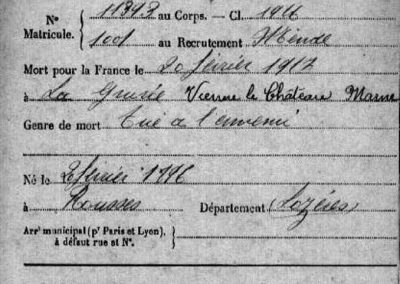 Nº
Matricule.
11393 au Corps. — Cl. 1916
1001 au Recrutement Mende
Mort pour la France le 20 février 1917
à La Grurie Vienne le Château Marne
Genre de mort Tué à l'ennemi
Né le 2 février 1896
à Rousses Département Lozère
Arrᵗ municipal (pʳ Paris et Lyon),
à défaut rue et Nº.